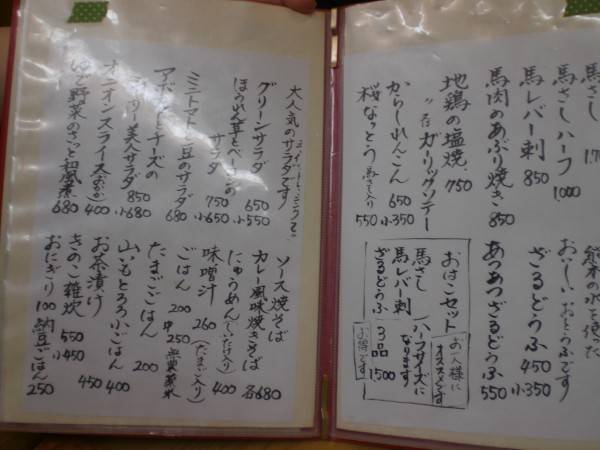 馬さし
馬さしハーフ 1,000
馬レバー刺 850
馬肉のあぶり焼き 850
地鶏の塩焼 750
〃 ガーリックソテー
からしれんこん 650 小350
桜なっとう 馬さし入り 550
熊本の水を使った
おいしいおとうふです
ざるどうふ 450 小350
あつあつざるどうふ 550
おはこセット お一人様にオススメです
馬さし ハーフサイズになります
馬レバー刺
ざるどうふ 3品 1,500
お得です
大人気のサラダです
グリーンサラダ 650 小550
ほうれん草とベーコンのサラダ 750 小650
ミニトマトと豆のサラダ 680
アボカドとチーズの
美人サラダ 850 小680
オニオンスライス(おかか) 400
ゆで野菜のさっと和風煮 680
ソース焼そば
カレー風味焼きそば 各680
にゅうめん(しいたけ入り) 400
味噌汁 260 (たまご入り)
ごはん 200 中250 無農薬米
たまごごはん 200
山いもとろろ小ごはん 400
お茶漬け 450
きのこ雑炊 550 小450
おにぎり 100 納豆ごはん 250